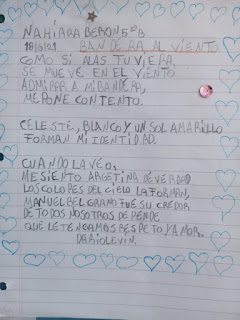 NAHIARA BERON 5°B
18/6/21 BANDERA AL VIENTO
COMO SI ALAS TUVIERA,
SE MUEVE EN EL VIENTO
ADMIRAR A MI BANDERA,
ME PONE CONTENTO.
CELESTE, BLANCO Y UN SOL AMARILLO
FORMAN MI IDENTIDAD.
CUANDO LA VEO,
ME SIENTO ARGETINA DE VERDAD
LOS COLORES DEL CIELO LA FORMAN,
MANUEL BELGRANO FUE SU CREDOR
DE TODOS NOSOTROS DEPENDE
QUE LE TENGAMOS RESPETO Y AMOR.
DARIO LEVIN.